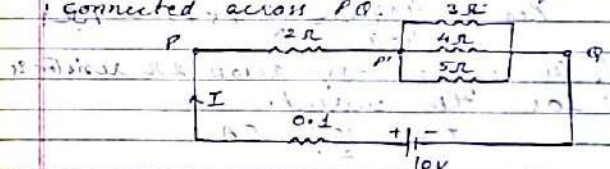 connected across PQ.
3Ω
P 2Ω P' 4Ω Q
5Ω
I
0.1 + −
10V